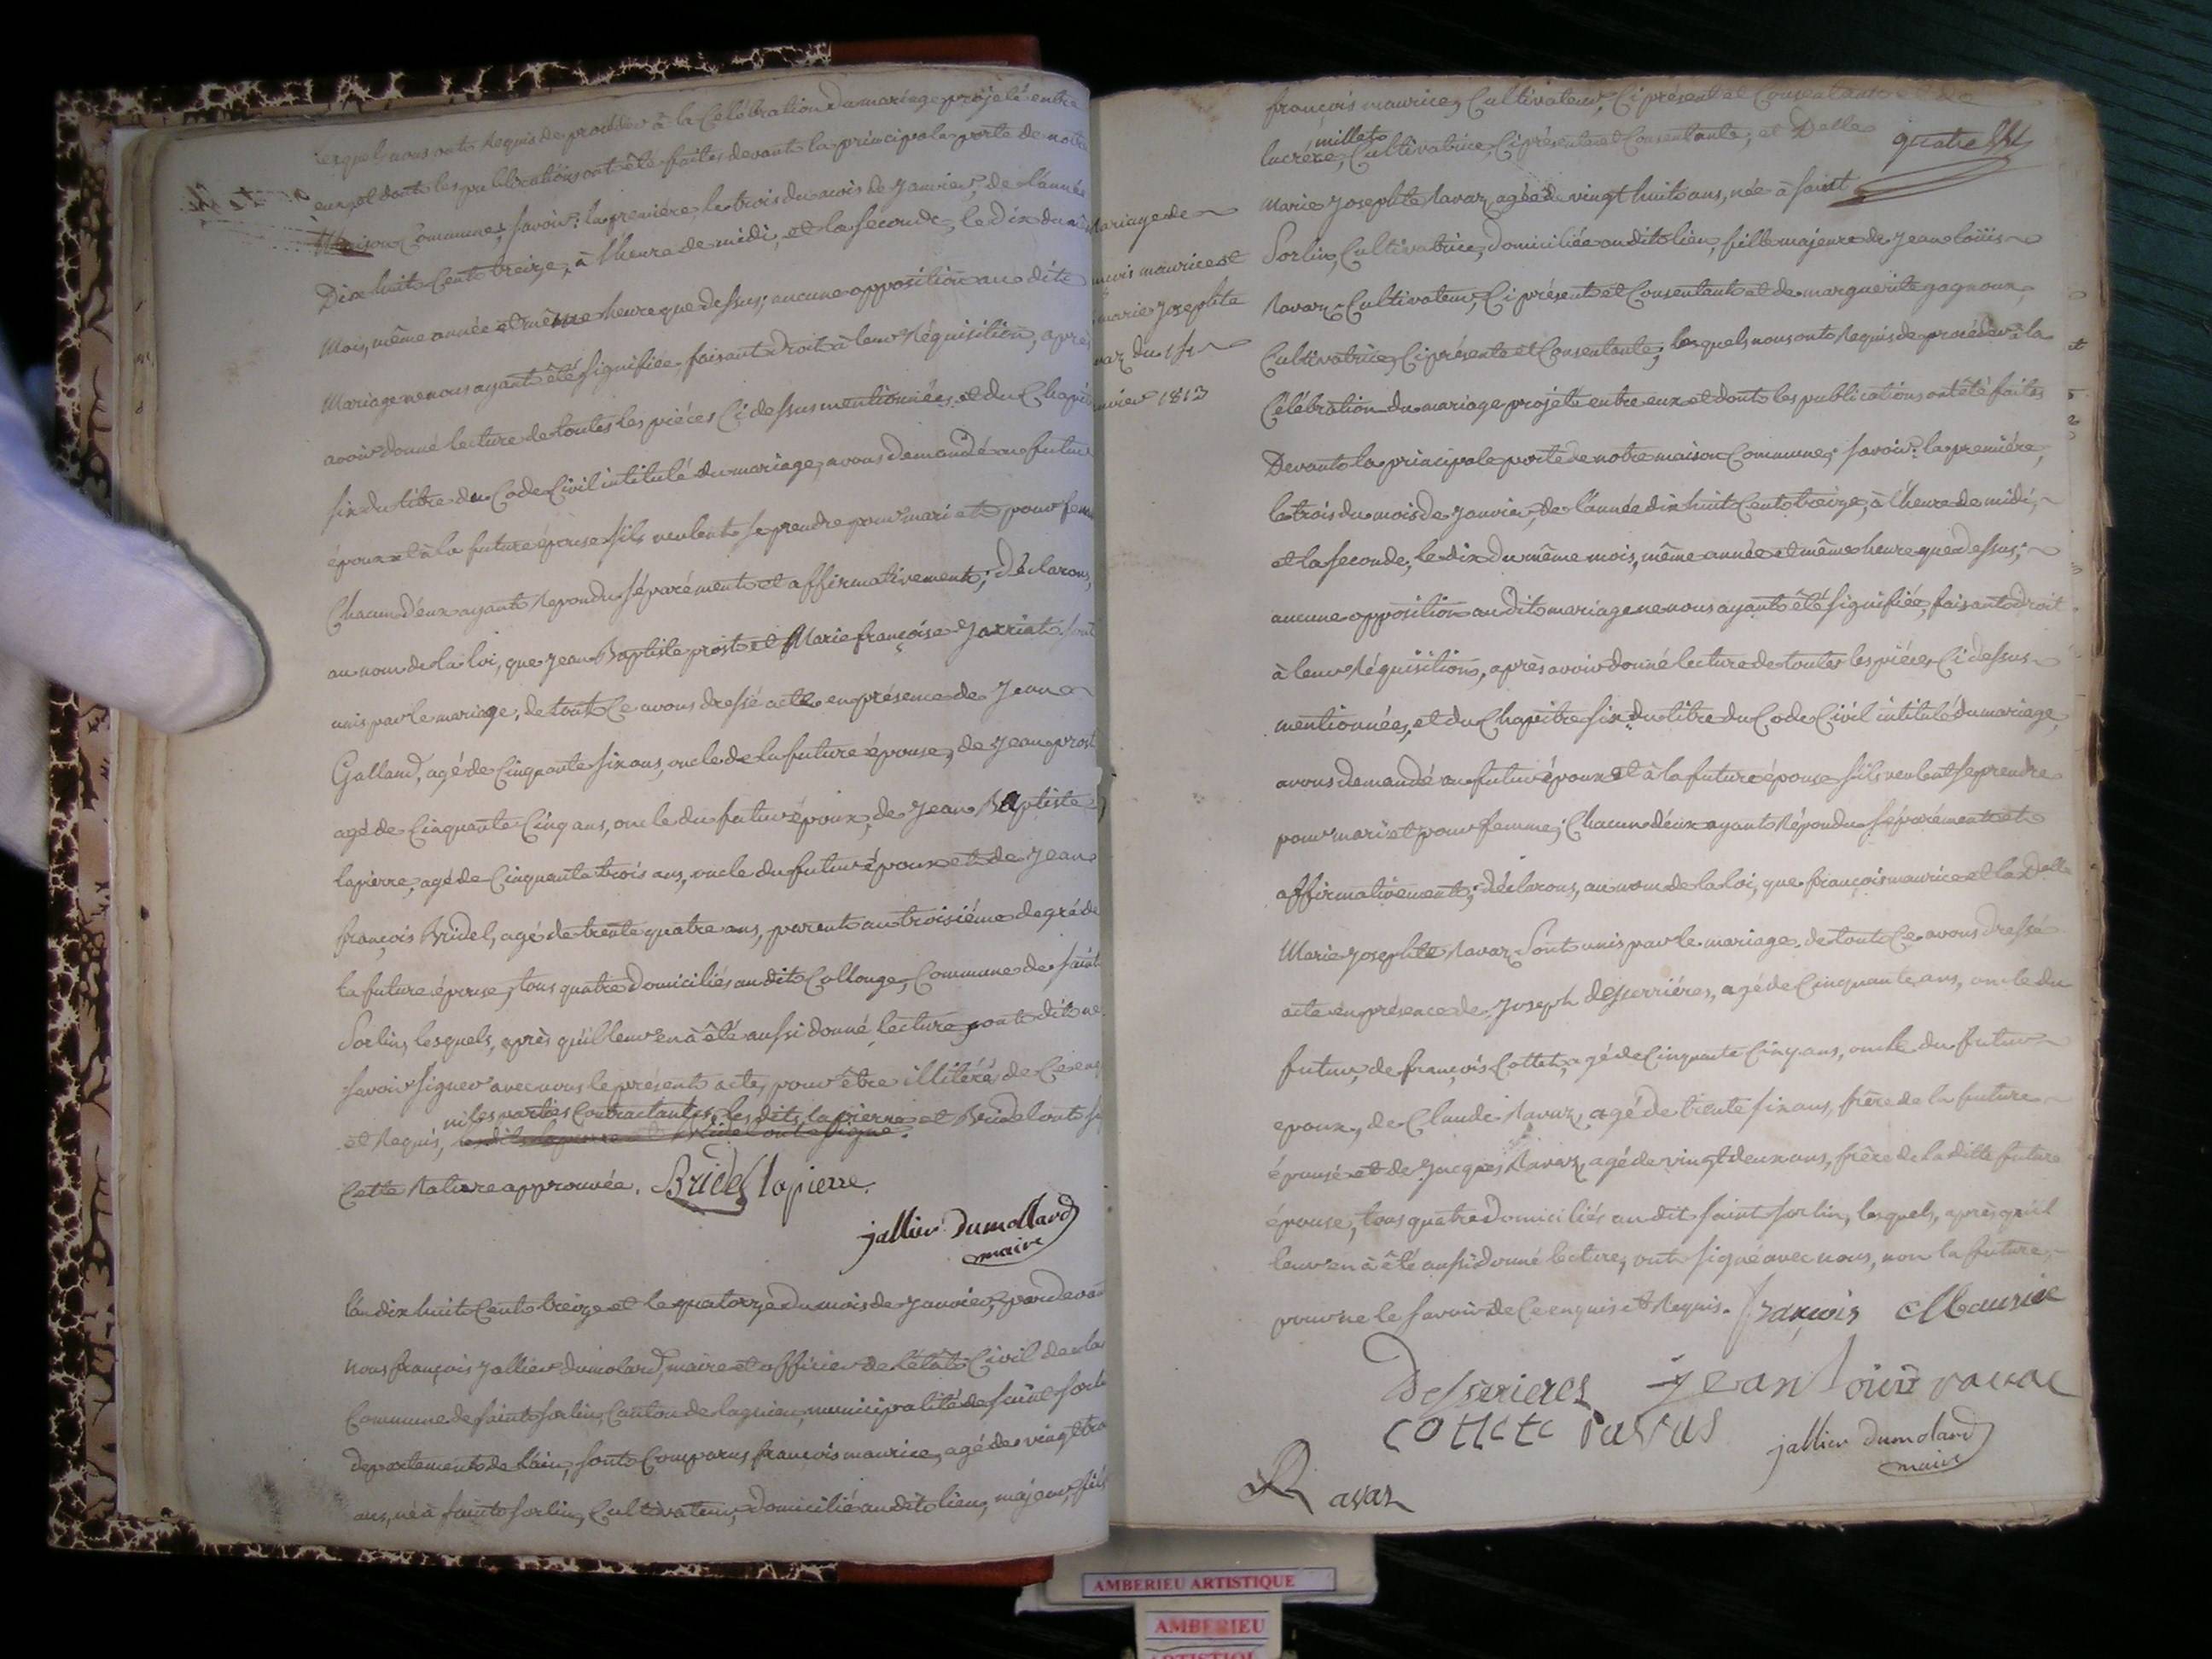 lesquels nous ont requis de procéder à la Célébration du mariage projeté entre
eux et dont les publications ont été faites devant la principale porte de notre
Maison Commune, savoir: la première, le trois du mois de janvier, de l'année
Dix huit Cent treize, à l'heure de midi, et la seconde, le dix du même
Mois, même année et même heure que dessus; aucune opposition au dit
Mariage ne nous ayant été signifiée, faisant droit à leur réquisition, après
avoir donné lecture de toutes les pièces Ci dessus mentionnées, et du Chapitre
six du titre du Code Civil intitulé du mariage, avons demandé au futur
époux et à la future épouse s'ils veulent se prendre pour mari et pour femme
Chacun d'eux ayant répondu séparément et affirmativement; déclarons,
au nom de la loi, que jean Baptiste prost et Marie françoise Jarriat sont
unis par le mariage, de tout Ce avons dressé acte en présence de Jean
Galland, agé de Cinquante six ans, oncle de la future épouse, de jean prost
agé de Cinquante Cinq ans, oncle du futur époux, de jean Baptiste
lapierre, agé de Cinquante trois ans, oncle du futur époux et de jean
françois Bridel, agé de trente quatre ans, parent au troisième degré de
la future épouse, tous quatre domiciliés au dit Collonge, Commune de saint
Sorlin, lesquels, après qu'il leur en à été aussi donné lecture, ont dit ne
savoir signer avec nous le présent acte, pour être illitéré de Ce enq
ni les parties Contractantes, les dits lapierre et Bridel ont si
et requis, les dits lapierre et Bridel ont signé.
Cette rature approuvée. Bridel lapierre.
jallier Dumollard
maire
L'an dix huit Cent treize et le quatorze du mois de janvier, pardevant
Nous françois jallier dumolard, maire et officier de l'état Civil de la
Commune de saint sorlin, Canton de lagnieu, municipalité de saint sorlin
département de l'ain, sont Comparus françois maurice, agé de vingt tro
ans, né à saint sorlin, Cultivateur, domicilié au dit lieu, majeur, fils
ariage de
nçois maurice et
marie josephte
vaz du 14
nvier 1813
françois maurice, Cultivateur, Ci présent et Consentant et de
quatre
millet
lucrèce, Cultivatrice, Ci présente et Consentante; et Delle
Marie josephte Ravaz, agée de vingt huit ans, née à saint
Sorlin, Cultivatrice, domiciliée au dit lieu, fille majeure de jean loüis
Ravaz Cultivateur, Ci présent et Consentant et de marguerite gagnoux,
Cultivatrice, Ci présente et Consentante; lesquels nous ont requis de procéder à la
Célébration du mariage projeté entre eux et dont les publications ont été faites
Devant la principale porte de notre maison Commune; savoir: la première,
le trois du mois de janvier, de l'année dix huit Cent treize, à l'heure de midi,
et la seconde, le dix du même mois, même année et même heure que dessus;
aucune opposition au dit mariage ne nous ayant été signifiée, faisant droit
à leur réquisition, après avoir donné lecture de toutes les pièces Ci dessus
mentionnées, et du Chapitre six du titre du Code Civil intitulé du mariage,
avons demandé au futur époux et à la future épouse s'ils veulent se prendre
pour mari et pour femme; Chacun d'eux ayant répondu séparément et
affirmativement; déclarons, au nom de la loi, que françois maurice et la Delle
Marie josephte Ravaz Sont unis par le mariage. de tout Ce avons dressé
acte en présence de Joseph desserrières, agé de Cinquante ans, oncle du
futur, de françois Cottet, agé de Cinquante Cinq ans, oncle du futur
époux, de Claude Ravaz, agé de trente six ans, frère de la future
épouse et de Jacques Ravaz, agé de vingt deux ans, frère de la ditte future
épouse, tous quatre domiciliés au dit saint sorlin, lesquels, après qu'il
leur en à été aussi donné lecture, ont signé avec nous, non la future,
pour ne le savoir de Ce enquis et requis. François Maurice
Desserieres jean louis ravaz
cottete ravas jallier dumolard
maire
Ravaz
AMBERIEU ARTISTIQUE
AMBERIEU
ARTISTIQUE